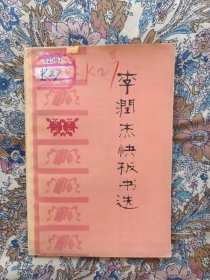 K27
K27
李潤杰快板书选